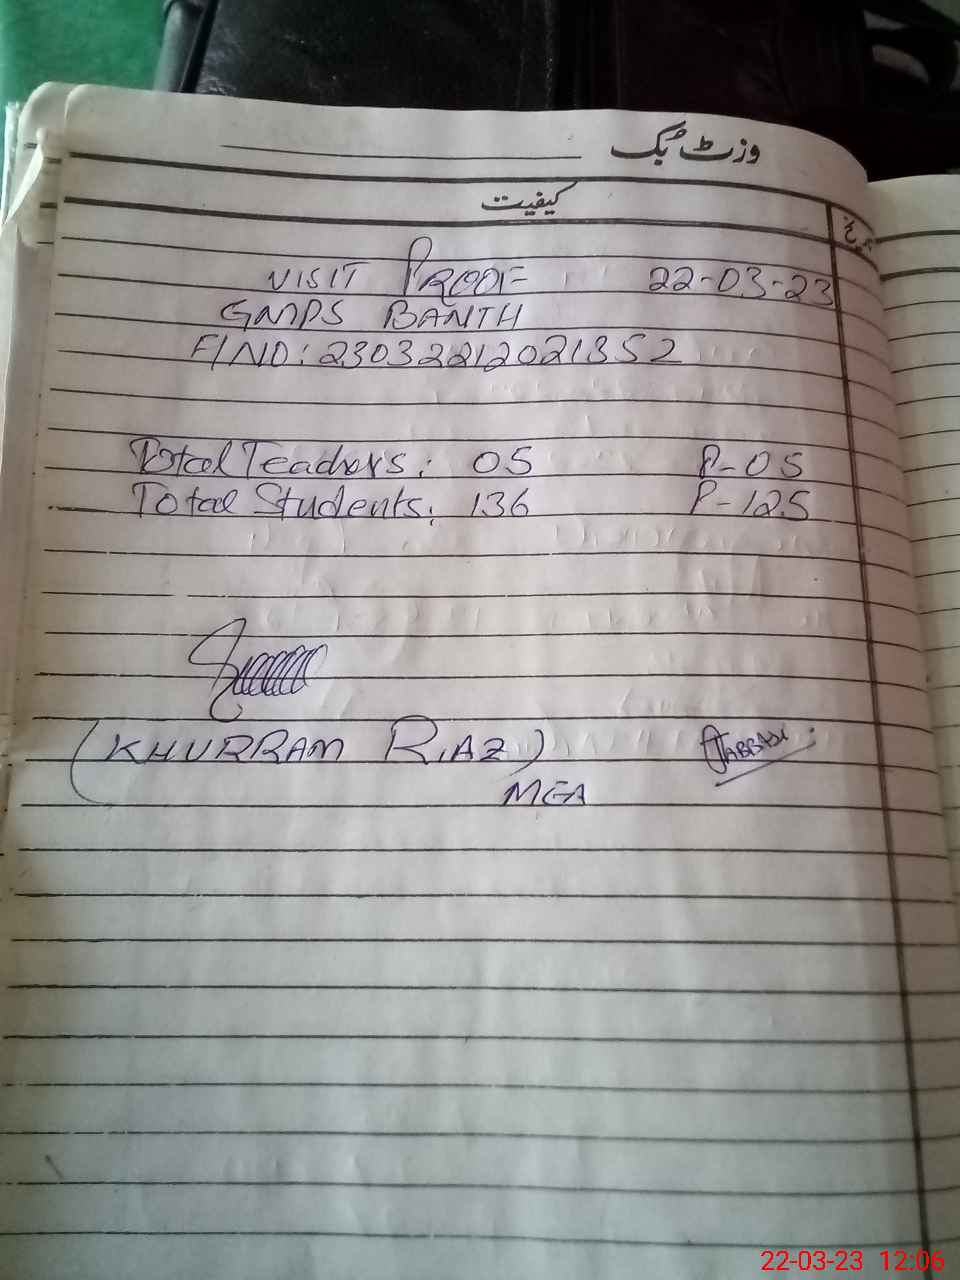 وزٹ بک
کیفیت
تاریخ
VISIT PROOF 22-03-23
GMPS BANTH
F/NO: 23032212021352
Total Teachers: 05 P-05
Total Students: 136 P-125
(KHURRAM RIAZ)
MEA
22-03-23 12:06